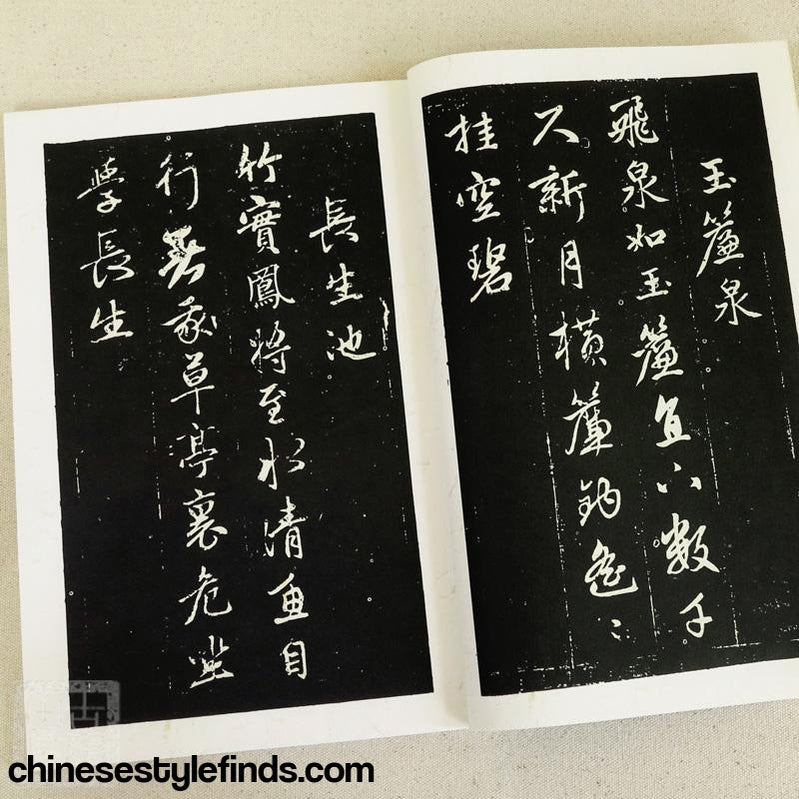 玉簾泉
飛泉如玉簾直下數千
尺新月橫簾鈎遙〻
挂空碧
長生池
竹實鳳將至水清魚自
行喜我草亭裏危坐
學長生
chinesestylefinds.com